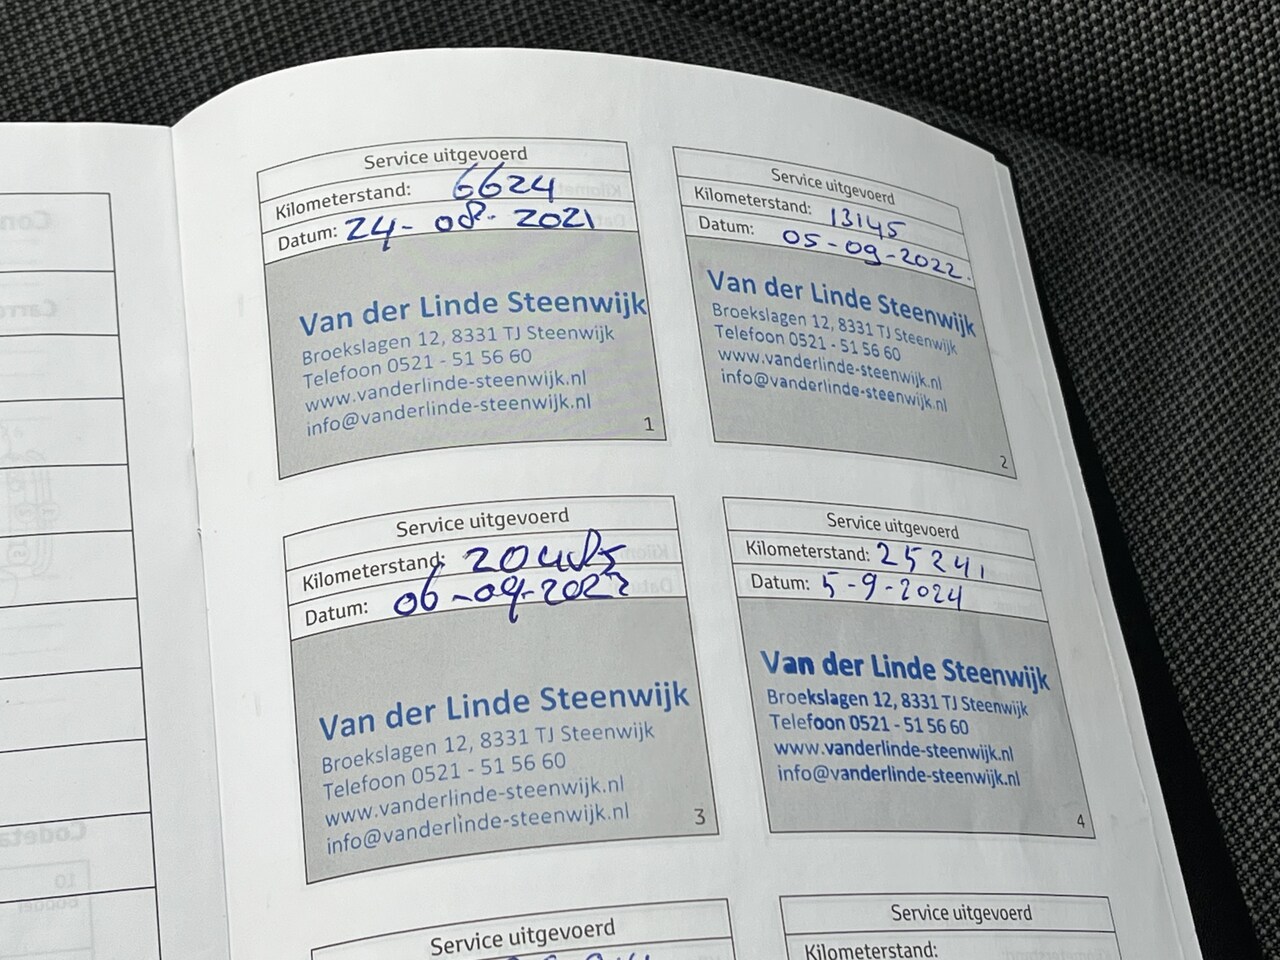 Service uitgevoerd
Kilometerstand: 6624
Datum: 24-08-2021
Van der Linde Steenwijk
Broekslagen 12, 8331 TJ Steenwijk
Telefoon 0521 - 51 56 60
www.vanderlinde-steenwijk.nl
info@vanderlinde-steenwijk.nl
1
Service uitgevoerd
Kilometerstand: 13145
Datum: 05-09-2022.
Van der Linde Steenwijk
Broekslagen 12, 8331 TJ Steenwijk
Telefoon 0521 - 51 56 60
www.vanderlinde-steenwijk.nl
info@vanderlinde-steenwijk.nl
2
Service uitgevoerd
Kilometerstand:
Datum:
Van der Linde Steenwijk
Broekslagen 12, 8331 TJ Steenwijk
Telefoon 0521 - 51 56 60
www.vanderlinde-steenwijk.nl
info@vanderlinde-steenwijk.nl
3
Service uitgevoerd
Kilometerstand: 25241
Datum: 5-9-2024
Van der Linde Steenwijk
Broekslagen 12, 8331 TJ Steenwijk
Telefoon 0521 - 51 56 60
www.vanderlinde-steenwijk.nl
info@vanderlinde-steenwijk.nl
4
Service uitgevoerd
Service uitgevoerd
Kilometerstand: